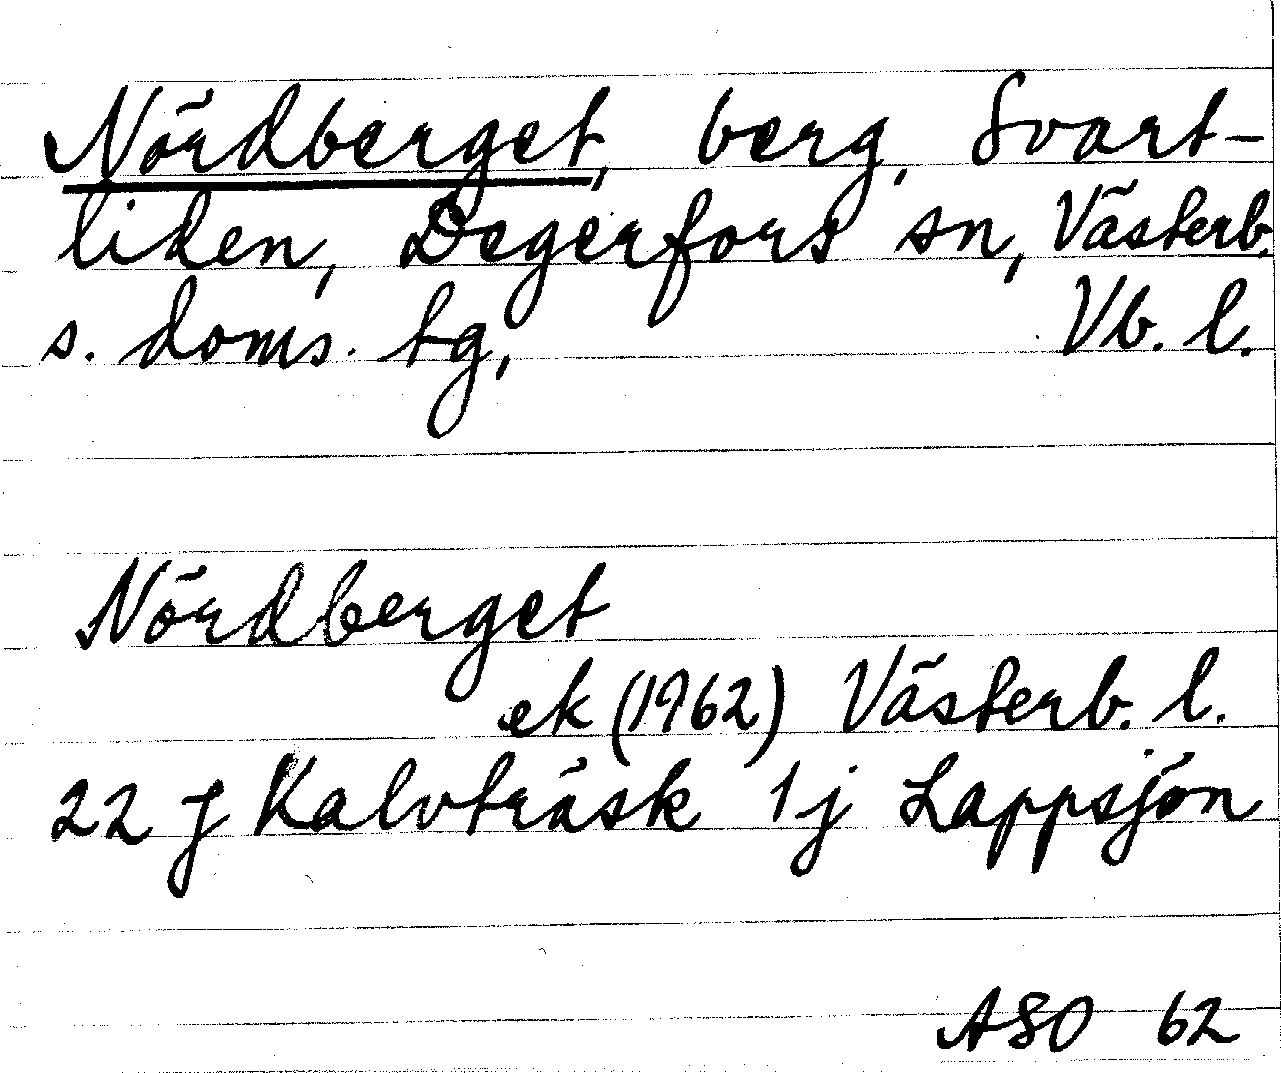 Nördberget, berg, Svart-
liden, Degerfors sn, Västerb.
s. doms. tg, Vb. l.
Nördberget
ek (1962) Västerb. l.
22 J Kalvträsk 1j Lappsjön
ASO 62